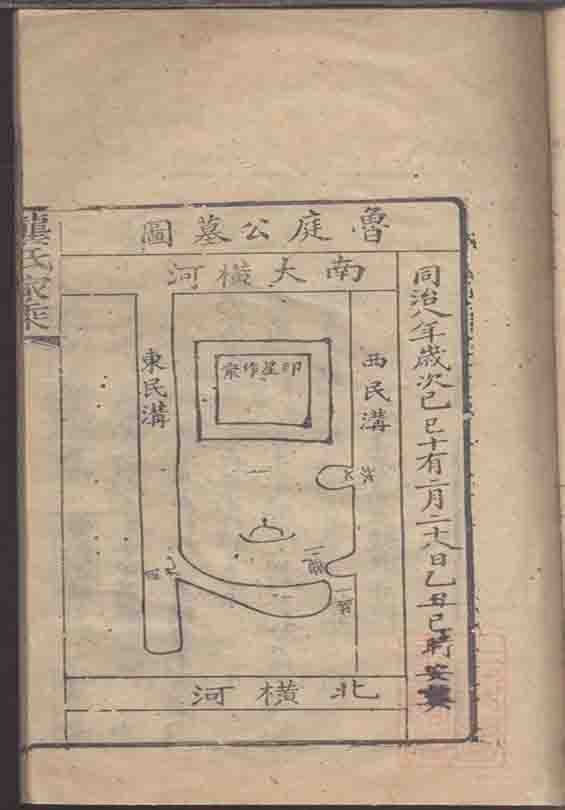 魯庭公墓圖
同治八年歲次己巳十有二月二十八日乙丑巳時安葬
南大橫河
西民溝
東民溝
印星作案
北橫河
龔氏家乘